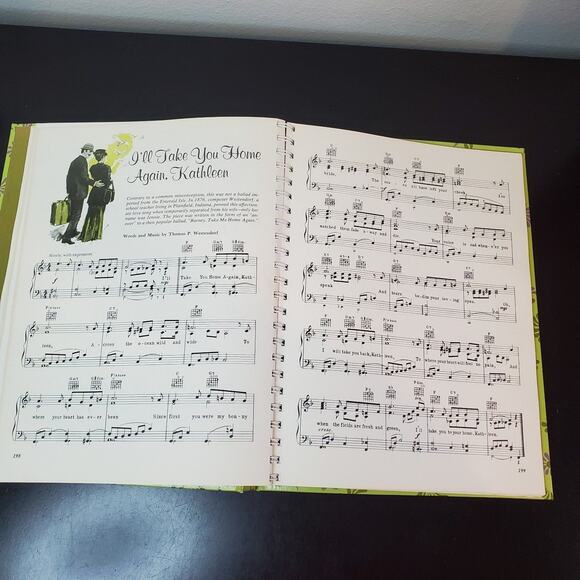 I'll Take You Home
Again, Kathleen
Contrary to a common misconception, this was not a ballad im-
ported from the Emerald Isle. In 1876, composer Westendorf, a
school teacher living in Plainfield, Indiana, penned this affection-
ate love song when temporarily separated from his wife—only her
name was Jennie. The piece was written in the form of an "an-
swer" to a then popular ballad, "Barney, Take Me Home Again."
Words and Music by Thomas P. Westendorf
Slowly, with expression
I'll Take You Home A-gain, Kath-
leen, A-cross the o-cean wild and wide To
where your heart has ev-er been Since first you were my bon-ny
198
bride. The ros-es all have left your cheek, I've
watched them fade a-way and Your voice is sad when-e'er you
speak And tears be-dim your lov-ing eyes. Oh,
I will take you back, Kath-leen, To where your heart will feel no pain, And
when the fields are fresh and green, I'll take you to your home, Kath-leen.
cresc.
199